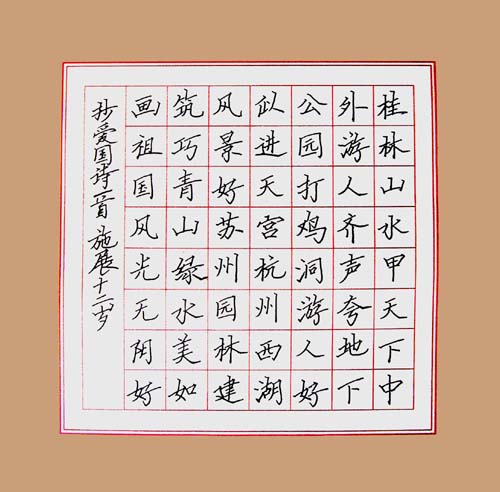 桂林山水甲天下中
外游人齐声夸地下
公园打鸡洞游人好
似进天宫杭州西湖
风景好苏州园林建
筑巧青山绿水美如
画祖国风光无阴好
抄爱国诗一首 施展十二岁